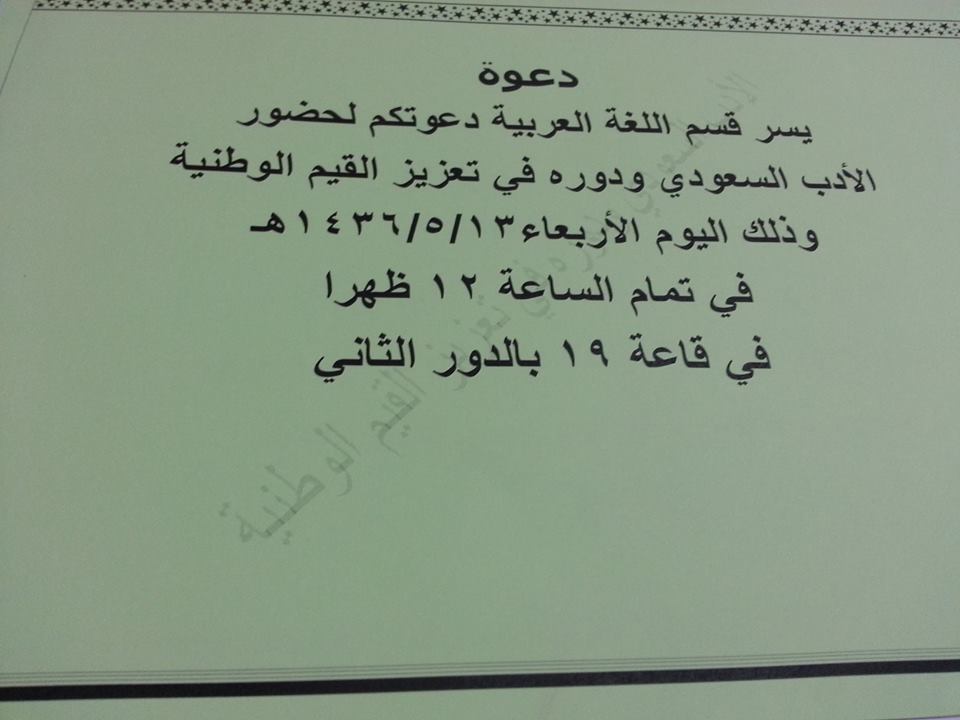 دعوة
يسر قسم اللغة العربية دعوتكم لحضور
الأدب السعودي ودوره في تعزيز القيم الوطنية
وذلك اليوم الأربعاء١٤٣٦/٥/١٣هـ
في تمام الساعة ١٢ ظهرا
في قاعة ١٩ بالدور الثاني
الأدب السعودي ودوره في تعزيز القيم الوطنية